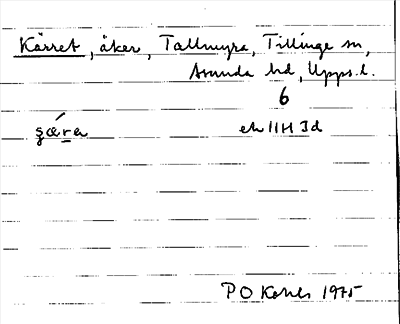 Kärret, åker, Tallmyra, Tillinge sn,
Asunda hd, Upps.l.
6
ek 11H 3d
P O
1975